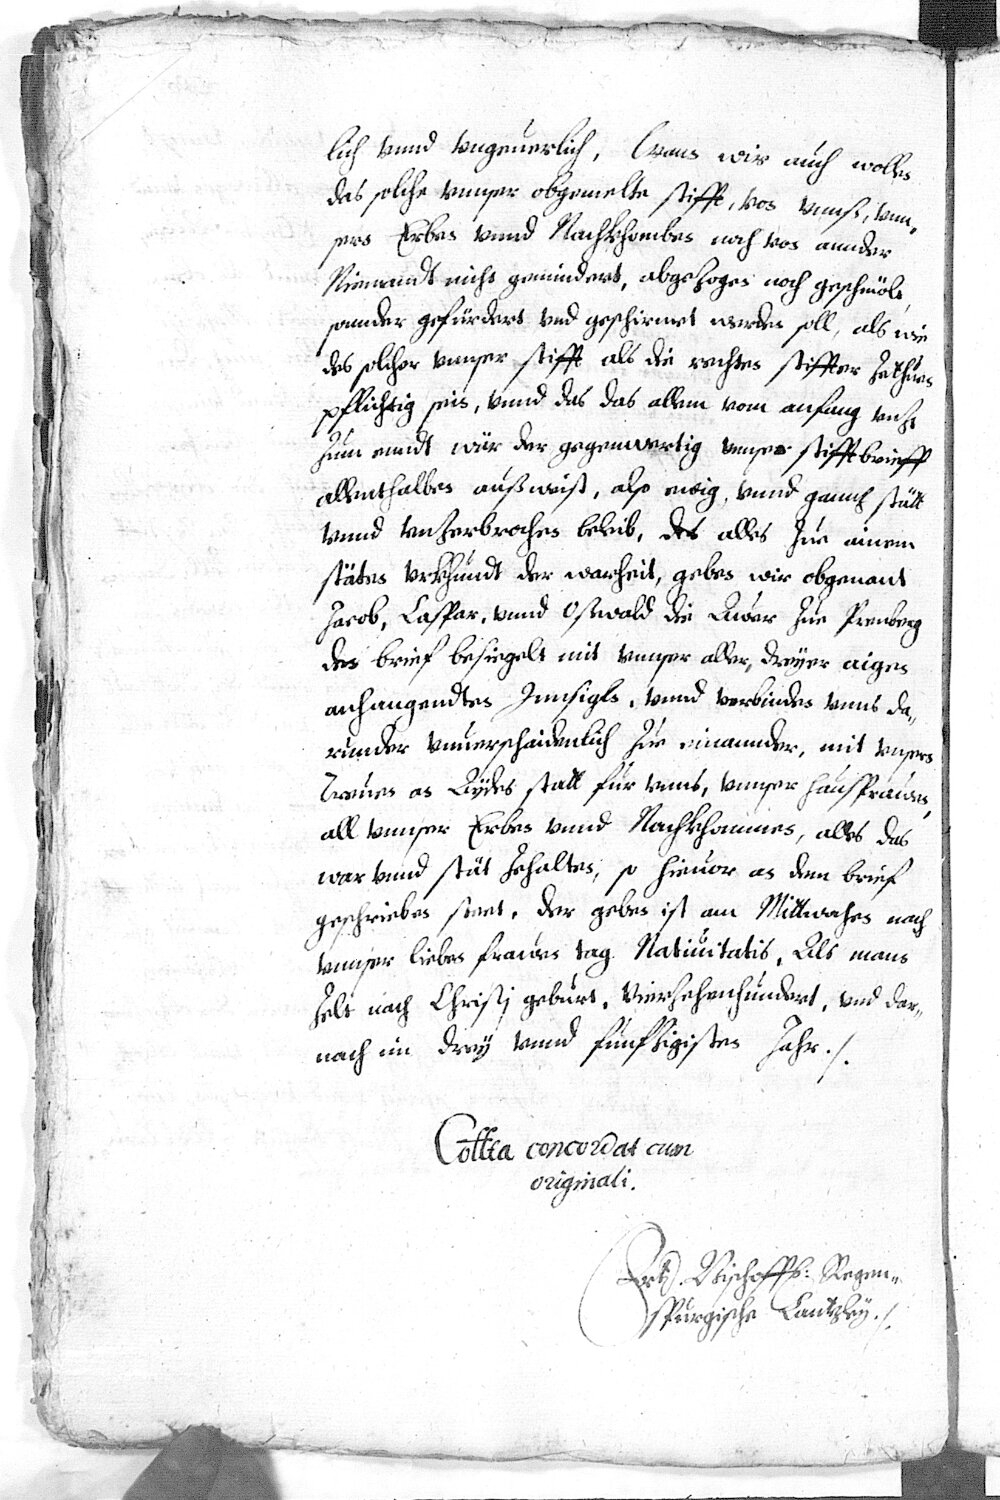 lich vnnd vngeuerlich, Wann wir auch wollen
das solche vnnser obgemelte stifft, von vnnß, vnn„
sern Erben vnnd Nachkhomben noch von annder
Niemandt nicht gemindert, abgezogen noch geschmölt
sonnder gefürdert vnd geschirmet werden soll, als wie
des solcher vnnser stifft als die rechten stiffter zethuen
pflichtig sein, vnnd das das allem vom anfang vnzt
zum enndt wär der gegenwertig vnnser stifftbrieff
allenthalben außweist, also ewig, vnnd gannz stätt
vnnd vnzerbrochen beleib, des alles zue ainem
stäten vrkhundt der warheit, geben wir obgenant
Jacob, Caspar, vnnd Oswald die Auer zue Prenberg
den brief besigelt mit vnnser aller, dreyer aigen
anhangendten Innsigln, vnnd verbinden vnns da„
runder vnuerschaidenlich zue einannder, mit vnsern
Treuen an Aydes statt für vnns, vnnser haußfrauen,
all vnnser Erben vnnd Nachkhommen, alles das
war vnnd stät zehalten, so hieuor an dem brief
geschrieben steet, der geben ist am Mittwochen nach
vnnser lieben frauen tag Natiuitatis, Als mann
zelt nach Christj geburt, Vierzehenhundert, vnd dar„
nach im drey vnnd funffzigisten Jahr./.
Collta concordat cum
originali.
Bischoffl: Regen„
spurgische Cantzley./.